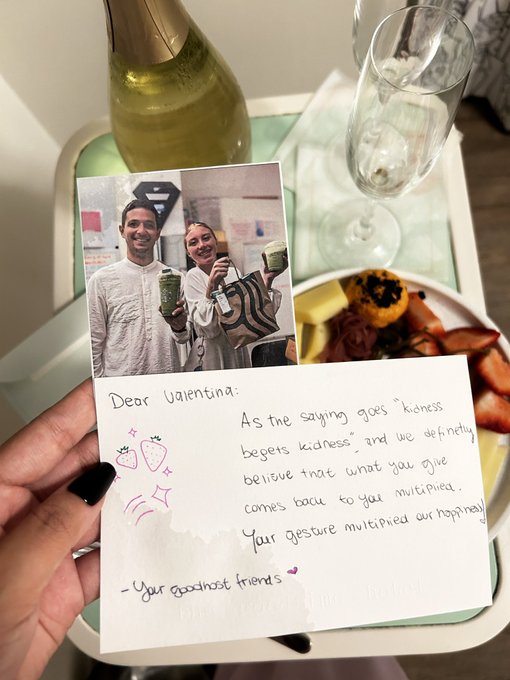 Dear Valentina:
As the saying goes "kidness
begets kidness", and we definetly
belive that what you give
comes back to you multiplied.
Your gesture multiplied our happiness!
- Your goodnost friends